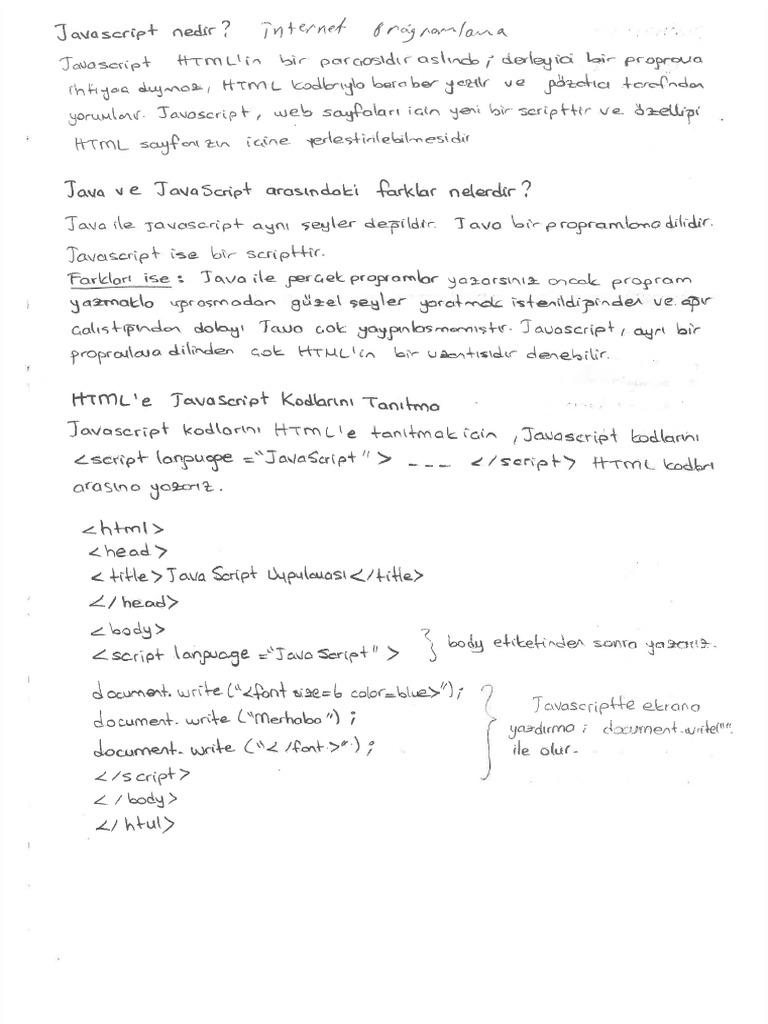 Javascript nedir? İnternet Programlama
Javascript HTML'in bir parçasıdır aslında; derleyici bir programa
ihtiyaç duymaz, HTML kodlarıyla beraber yazılır ve gözatıcı tarafından
yorumlanır. Javascript, web sayfaları için yeni bir scripttir ve özelliği
HTML sayfanızın içine yerleştirilebilmesidir
Java ve JavaScript arasındaki farklar nelerdir?
Java ile javascript aynı şeyler değildir. Java bir programlama dilidir.
Javascript ise bir scripttir.
Farkları ise: Java ile gerçek programlar yazarsınız ancak program
yazmakla uğraşmadan güzel şeyler yaratmak istenildiğinden ve ağır
çalıştığından dolayı Java çok yaygınlaşmamıştır. Javascript, ayrı bir
programlama dilinden çok HTML'in bir uzantısıdır denebilir.
HTML'e JavaScript Kodlarını Tanıtma
Javascript kodlarını HTML'e tanıtmak için, Javascript kodlarını
<script language="JavaScript"> --- </script> HTML kodları
arasına yazarız.
<html>
<head>
<title>Java Script Uygulaması</title>
</head>
<body>
<script language="JavaScript"> } body etiketinden sonra yazarız.
document.write("<font size=6 color=blue>");
document.write("Merhaba");
document.write("</font>");
</script>
</body>
</html>
Javascriptte ekrana
yazdırma; document.write(""
ile olur.